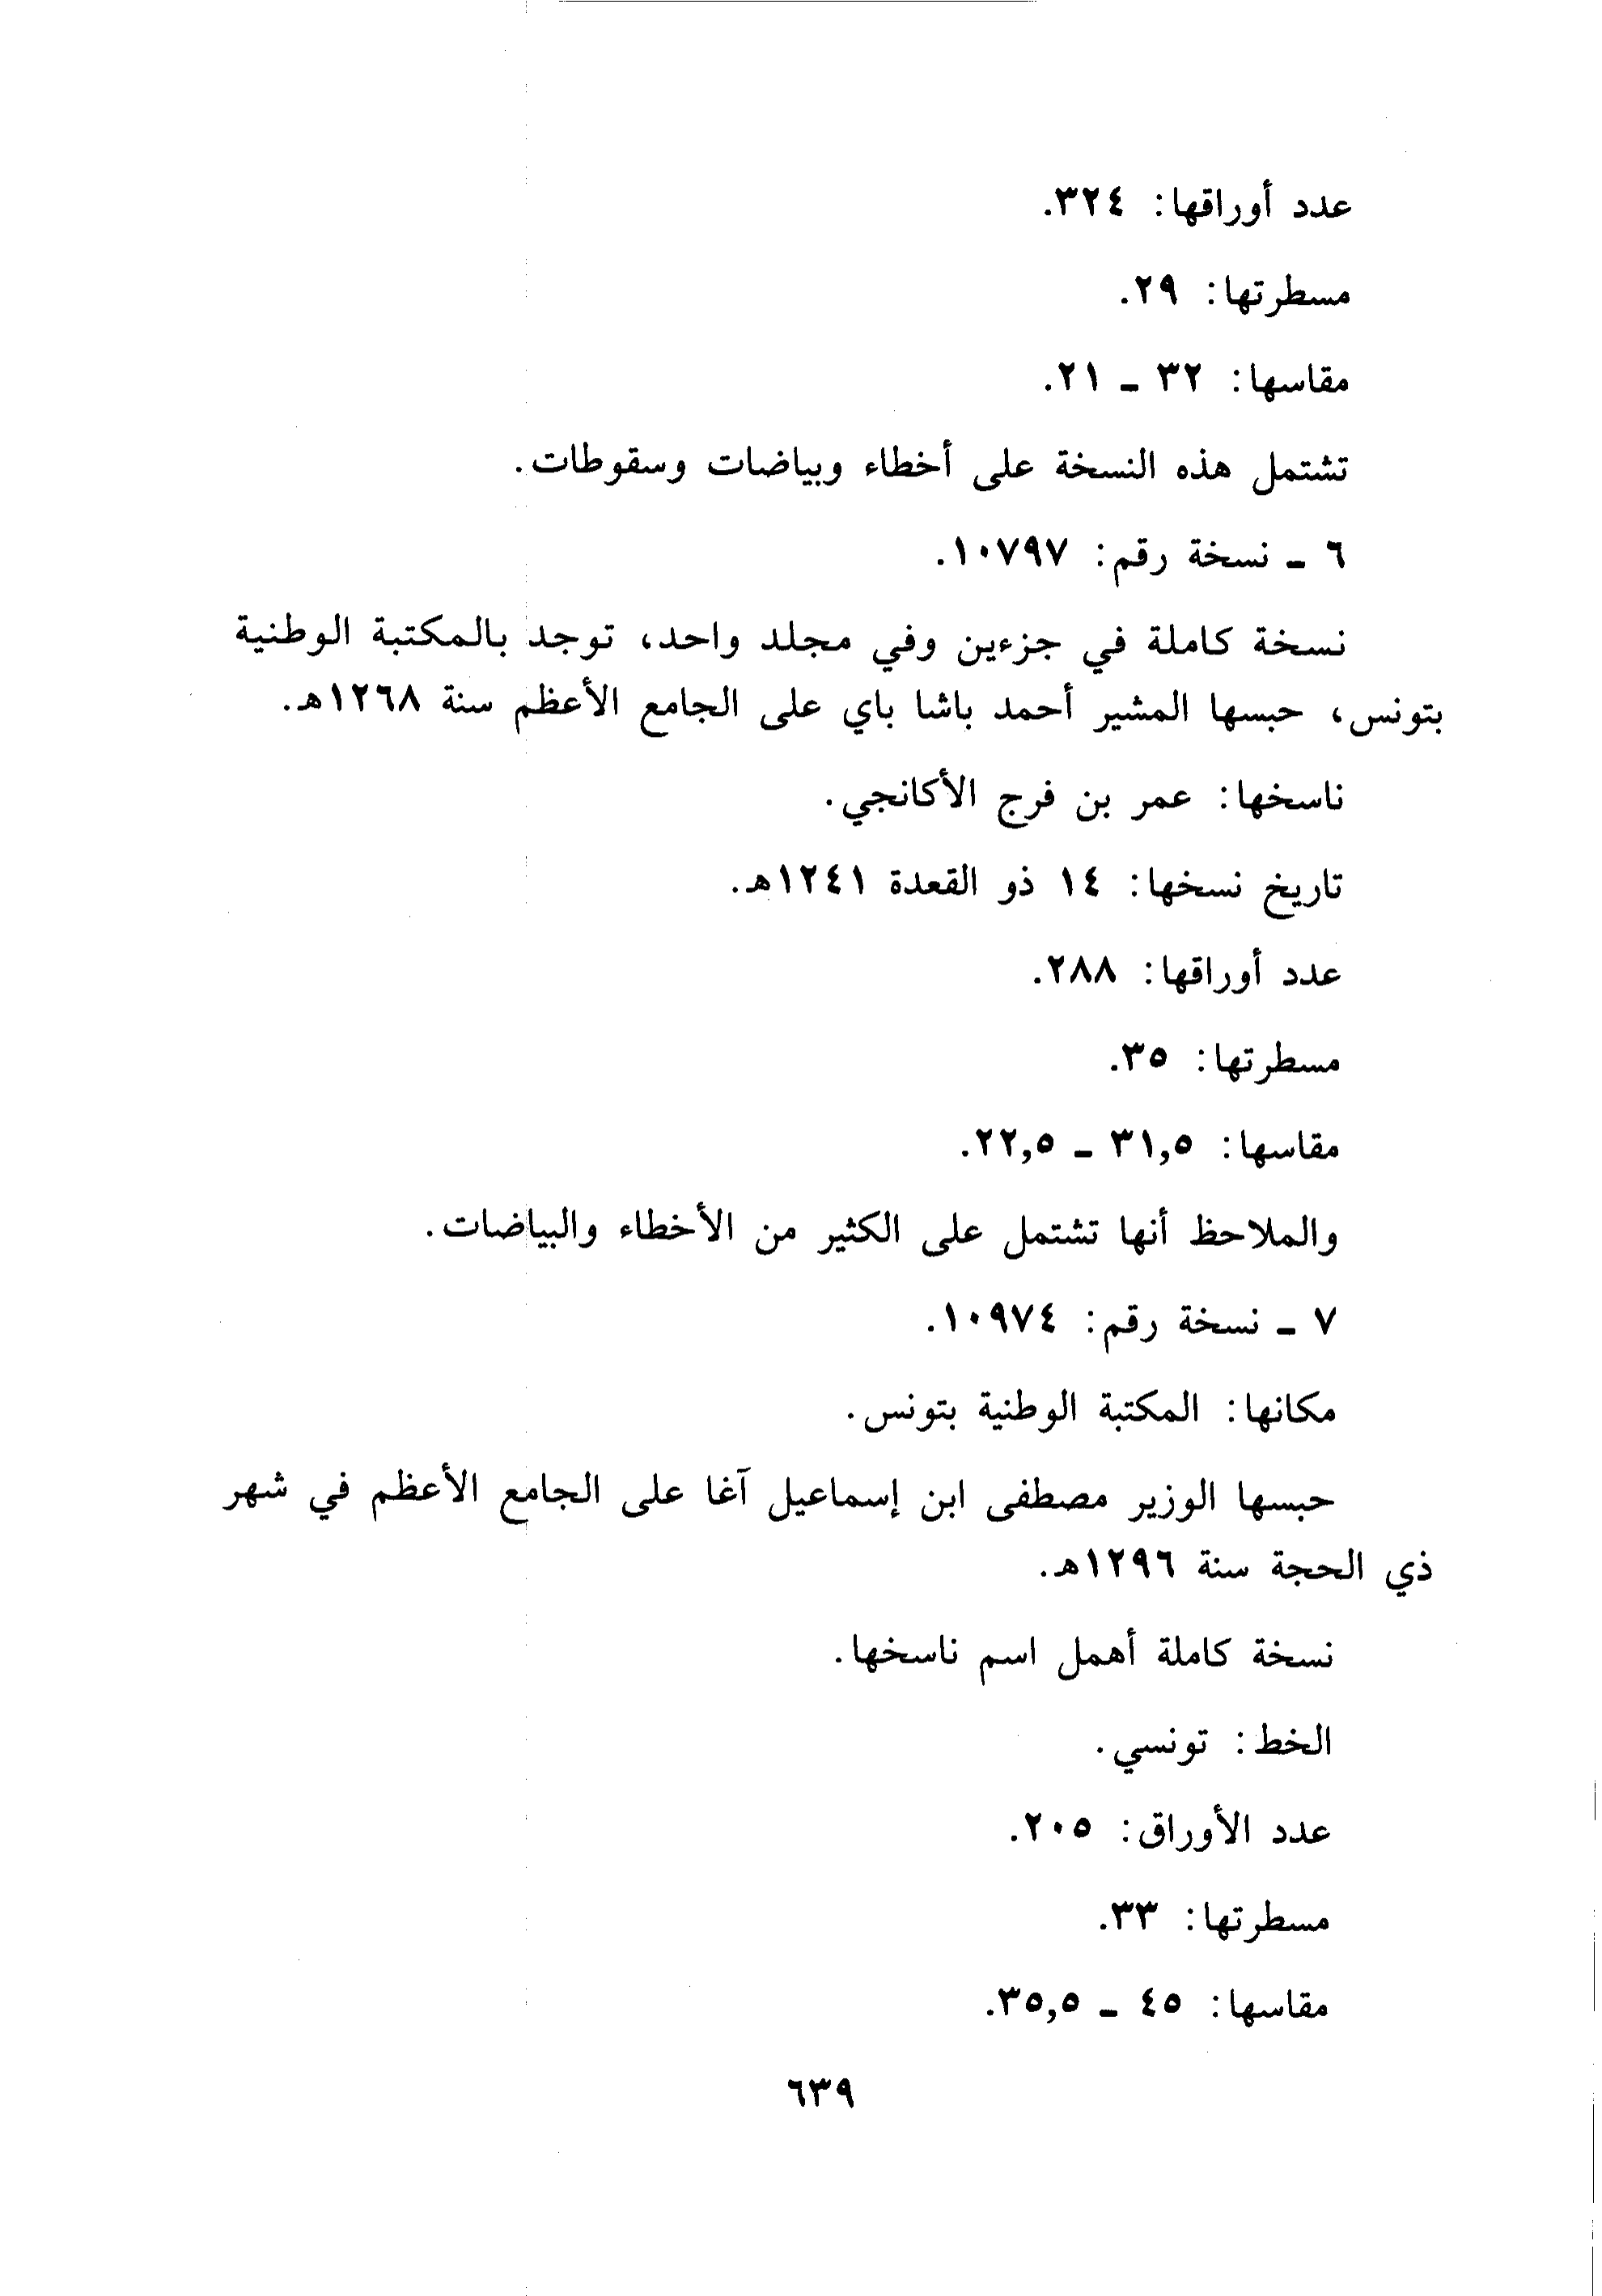 عدد أوراقها: ٣٢٤.
مسطرتها: ٢٩.
مقاسها: ٣٢ ـ ٢١.
تشتمل هذه النسخة على أخطاء وبياضات وسقوطات.
٦ ـ نسخة رقم: ١٠٧٩٧.
نسخة كاملة في جزءين وفي مجلد واحد، توجد بالمكتبة الوطنية
بتونس، حبسها المشير أحمد باشا باي على الجامع الأعظم سنة ١٢٦٨هـ.
ناسخها: عمر بن فرج الأكانجي.
تاريخ نسخها: ١٤ ذو القعدة ١٢٤١هـ.
عدد أوراقها: ٢٨٨.
مسطرتها: ٣٥.
مقاسها: ٣١,٥ ـ ٢٢,٥.
والملاحظ أنها تشتمل على الكثير من الأخطاء والبياضات.
٧ ـ نسخة رقم: ١٠٩٧٤.
مكانها: المكتبة الوطنية بتونس.
حبسها الوزير مصطفى ابن إسماعيل آغا على الجامع الأعظم في شهر
ذي الحجة سنة ١٢٩٦هـ.
نسخة كاملة أهمل اسم ناسخها.
الخط: تونسي.
عدد الأوراق: ٢٠٥.
مسطرتها: ٣٣.
مقاسها: ٤٥ ـ ٣٥,٥.
٦٣٩